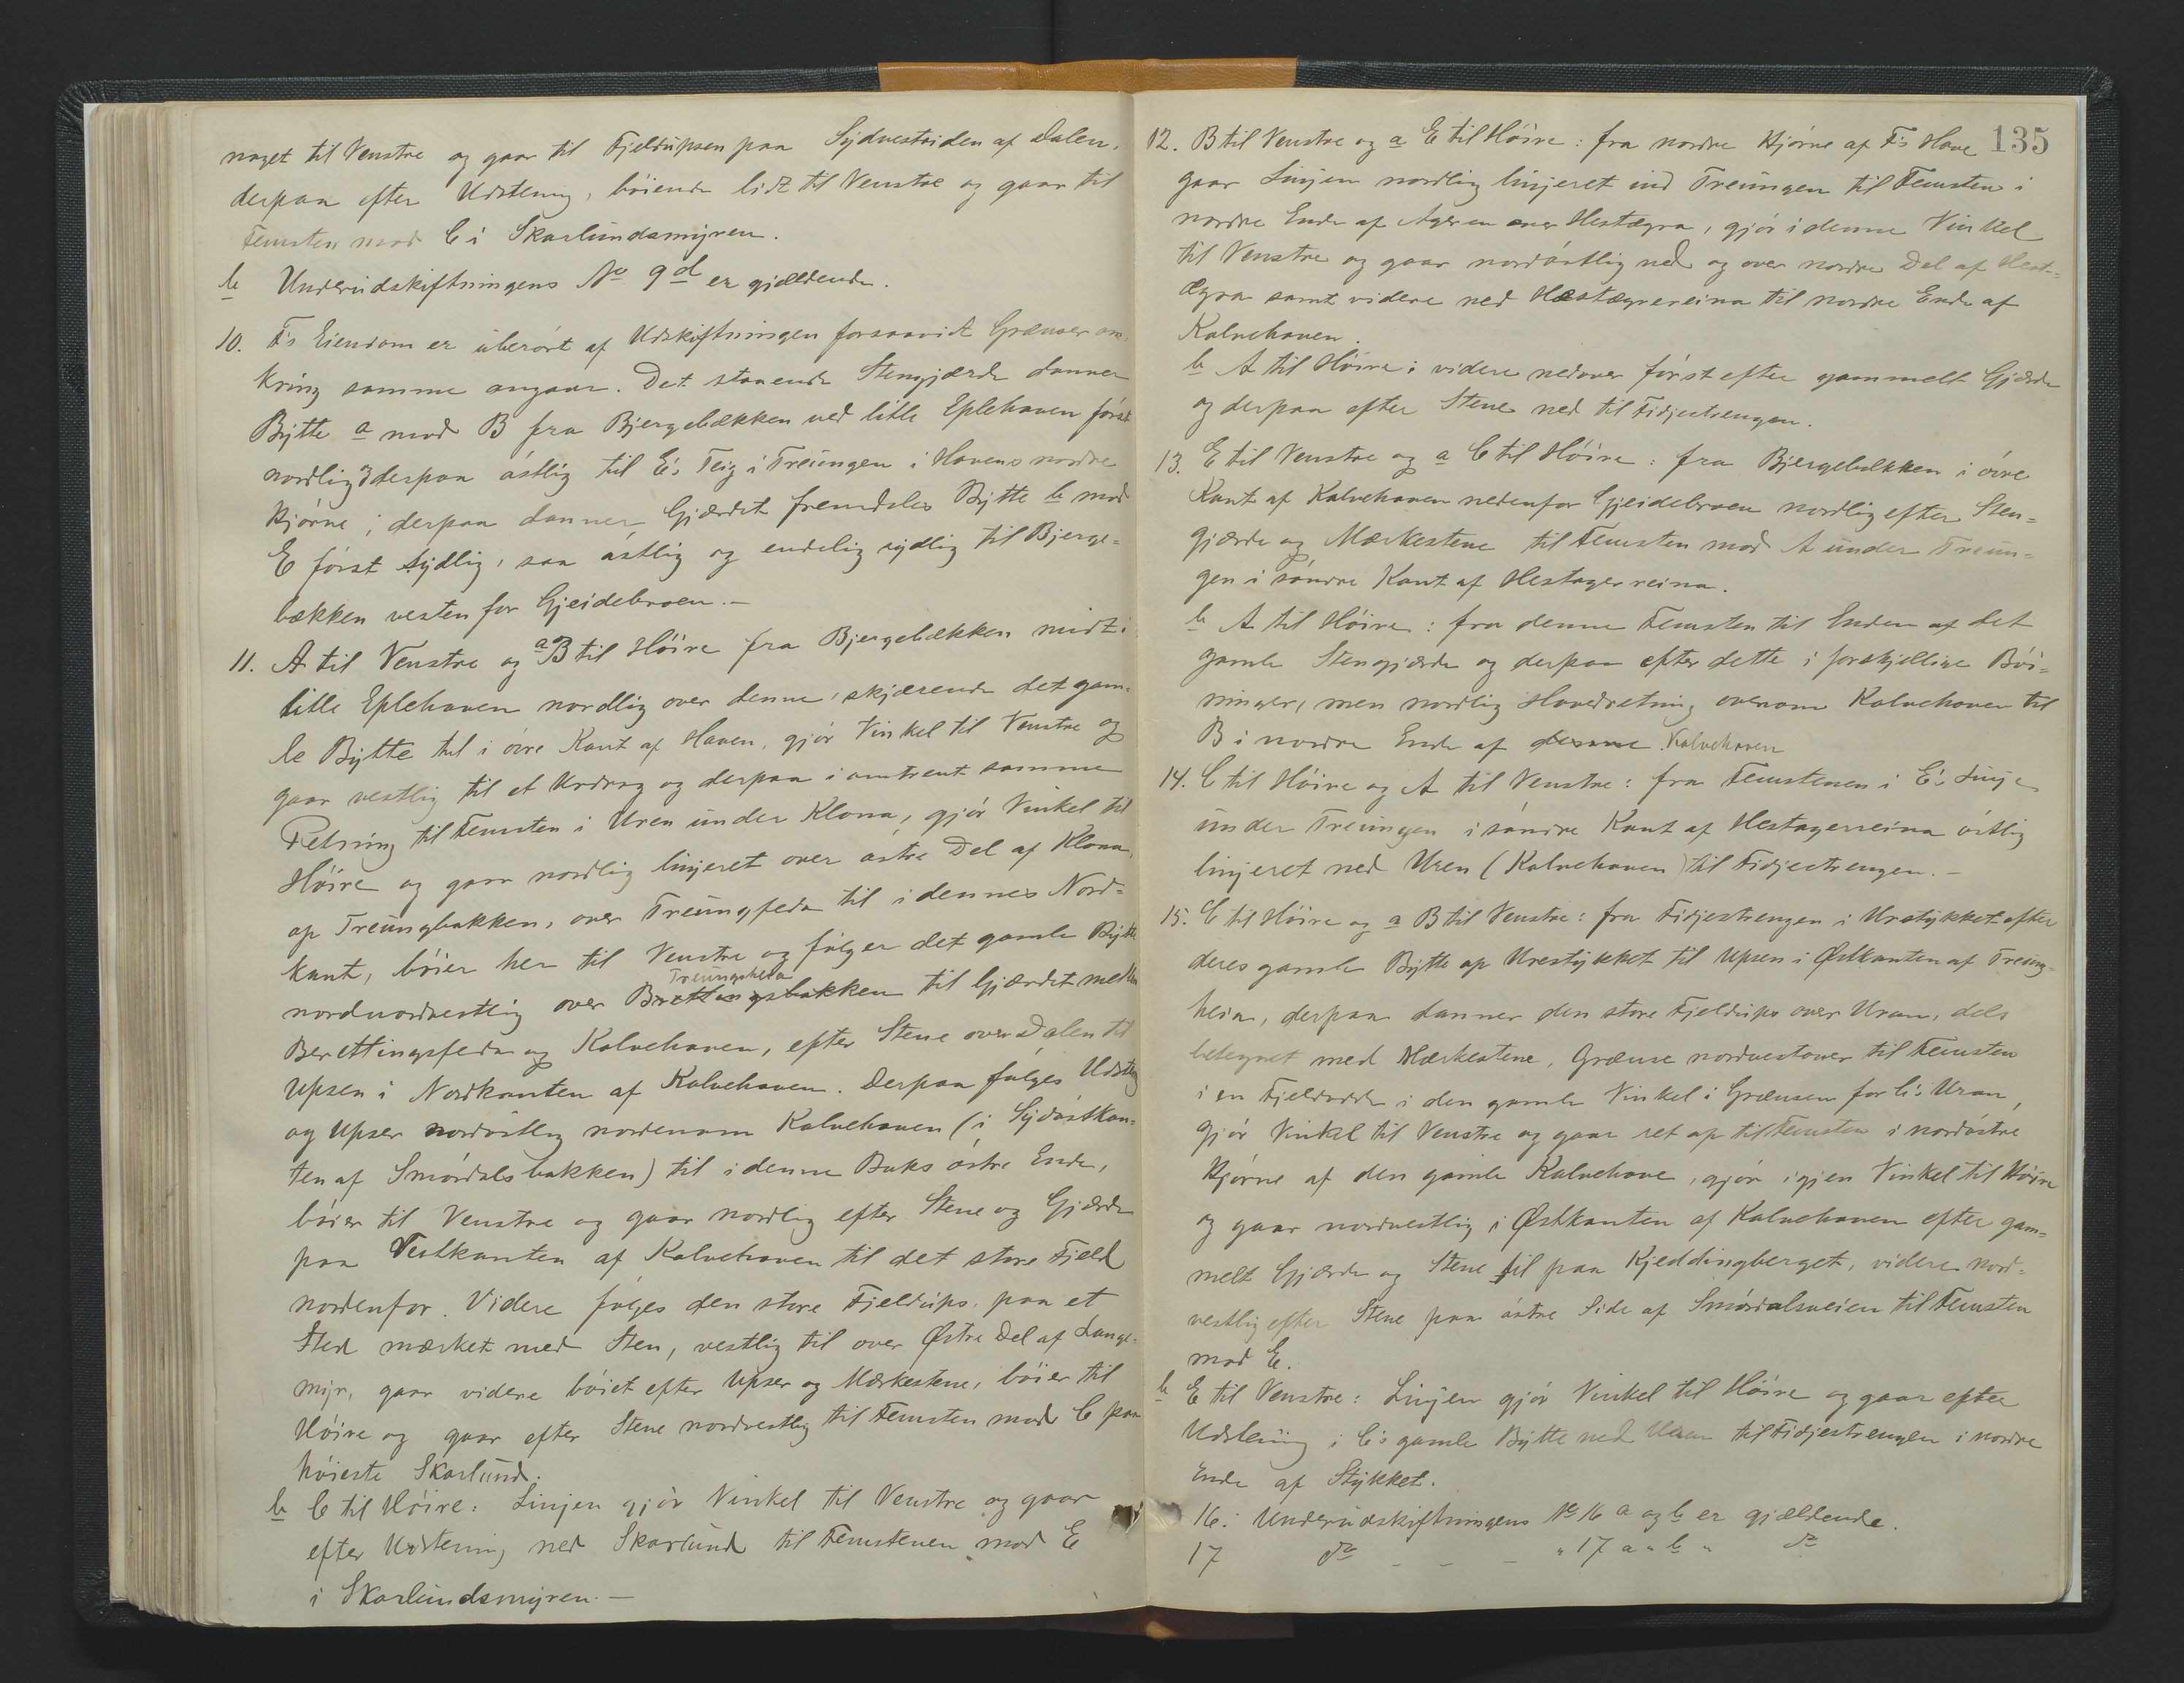 noget til Venstre og gaar til Fjeldupsen paa Sydvestsiden af Dalen,
derpaa efter Udstening, böiende lidt til Venstre og gaar til
Femsten mod C i Skarlundsmyren.
b Underudskiftningens No 9d er gjældende.
10. F's Eiendom er uberört af Udskiftningen forsaavidt Grænser om-
kring samme angaar. Det staaende Stengjærde danner
Bytte a mod B fra Bjergebækken ved litle Eplehaven först
nordlig og derpaa östlig til E's Teig i Treungen i Havens nordre
Hjörne; derpaa danner Gjærdet fremdeles Bytte b mod
E först sydlig, saa östlig og endelig sydlig til Bjerge-
bækken vesten for Gjeidebroen.—
11. A til Venstre og a B til Höire fra Bjergebækken midt i
litle Eplehaven nordlig over denne, skjærende det gam-
le Bytte til i övre Kant af Haven, gjör Vinkel til Venstre og
gaar vestlig til et Urdrag og derpaa i omtrent samme
Retning til Femsten i Uren under Klova, gjör Vinkel til
Höire og gaar nordlig linjeret over östre Del af Klova,
op Treungbakken, over Treungfeda til i dennes Nord-
kant, böier her til Venstre og fölger det gamle Bytte
Treungsheia
nordnordvestlig over Brettingsbakken til Gjærdet mellem
Berettingsfeda og Kalvehaven, efter Stene over Dalen til
Upsen i Nordkanten af Kalvehaven. Derpaa fölges Udstening
og Upser nordöstlig nordenom Kalvehaven (i Sydöstkan-
ten af Smördalsbakken) til i denne Baks östre Ende,
böier til Venstre og gaar nordlig efter Stene og Gjærde
paa Vestkanten af Kalvehaven til det store Fjeld
nordenfor. Videre fölges den store Fjeldups, paa et
Sted mærket med Sten, vestlig til over Østre Del af Lange-
myr, gaar videre böiet efter Upser og Mærkestene, böier til
Höire og gaar efter Stene nordvestlig til Femsten mod C paa
höieste Skarlund.
b C til Höire: Linjen gjör Vinkel til Venstre og gaar
efter Udstening ned Skarlund til Femstenen mod E
i Skarlundsmyren.—
135
12. B til Venstre og a E til Höire: fra nordre Hjörne af F's Have
gaar Linjen nordlig linjeret ind Treungen til Femsten i
nordre Ende af Ageren over Hestægra, gjör i denne Vinkel
til Venstre og gaar nordöstlig ned og over nordre Del af Hest-
ægra samt videre ned Hæstægrereina til nordre Ende af
Kalvehaven.
b A til Höire: videre nedover först efter gammelt Gjærde
og derpaa efter Stene ned til Fidjestrengen.
13. E til Venstre og a C til Höire: fra Bjergebækken i övre
Kant af Kalvehaven nedenfor Gjeidebroen nordlig efter Sten-
gjærde og Mærkestene til Femsten mod A under Treun-
gen i söndre Kant af Hestagerreina.
b A til Höire: fra denne Femsten til Enden af det
gamle Stengjærde og derpaa efter dette i forskjellige Böi-
ninger, men nordlig Hovedretning ovenom Kalvehaven til
B i nordre Ende af denne Kalvehaven
14. C til Höire og A til Venstre: fra Femstenen i E's Linje
under Treungen i söndre Kant af Hestagerreina östlig
linjeret ned Uren (Kalvehaven) til Fidjestrengen.—
15. C til Höire og a B til Venstre: fra Fidjestrengen i Urstykket efter
deres gamle Bytte op Urestykket til Upsen i Østkanten af Treung-
heia, derpaa danner den store Fjeldups over Uran, dels
betegnet med Mærkestene, Grænse nordvestover til Femsten
i en Fjeldodde i den gamle Vinkel i Grænsen for C's Uran,
gjör Vinkel til Venstre og gaar ret op til Femsten i nordöstre
Hjörne af den gamle Kalvehave, gjör igjen Vinkel til Höire
og gaar nordvestlig i Østkanten af Kalvehaven efter gam-
melt Gjærde og Stene til paa Kjeddingberget, videre nord-
vestlig efter Stene paa östre Side af Smördalsveien til Femsten
mod E.
b E til Venstre: Linjen gjör Vinkel til Höire og gaar efter
Udstening i C's gamle Bytte ned Uran til Fidjestrengen i nordre
Ende af Stykket.
16. Underudskiftningens No 16 a og b er gjældende.
17 do - - - " 17 a " b " do